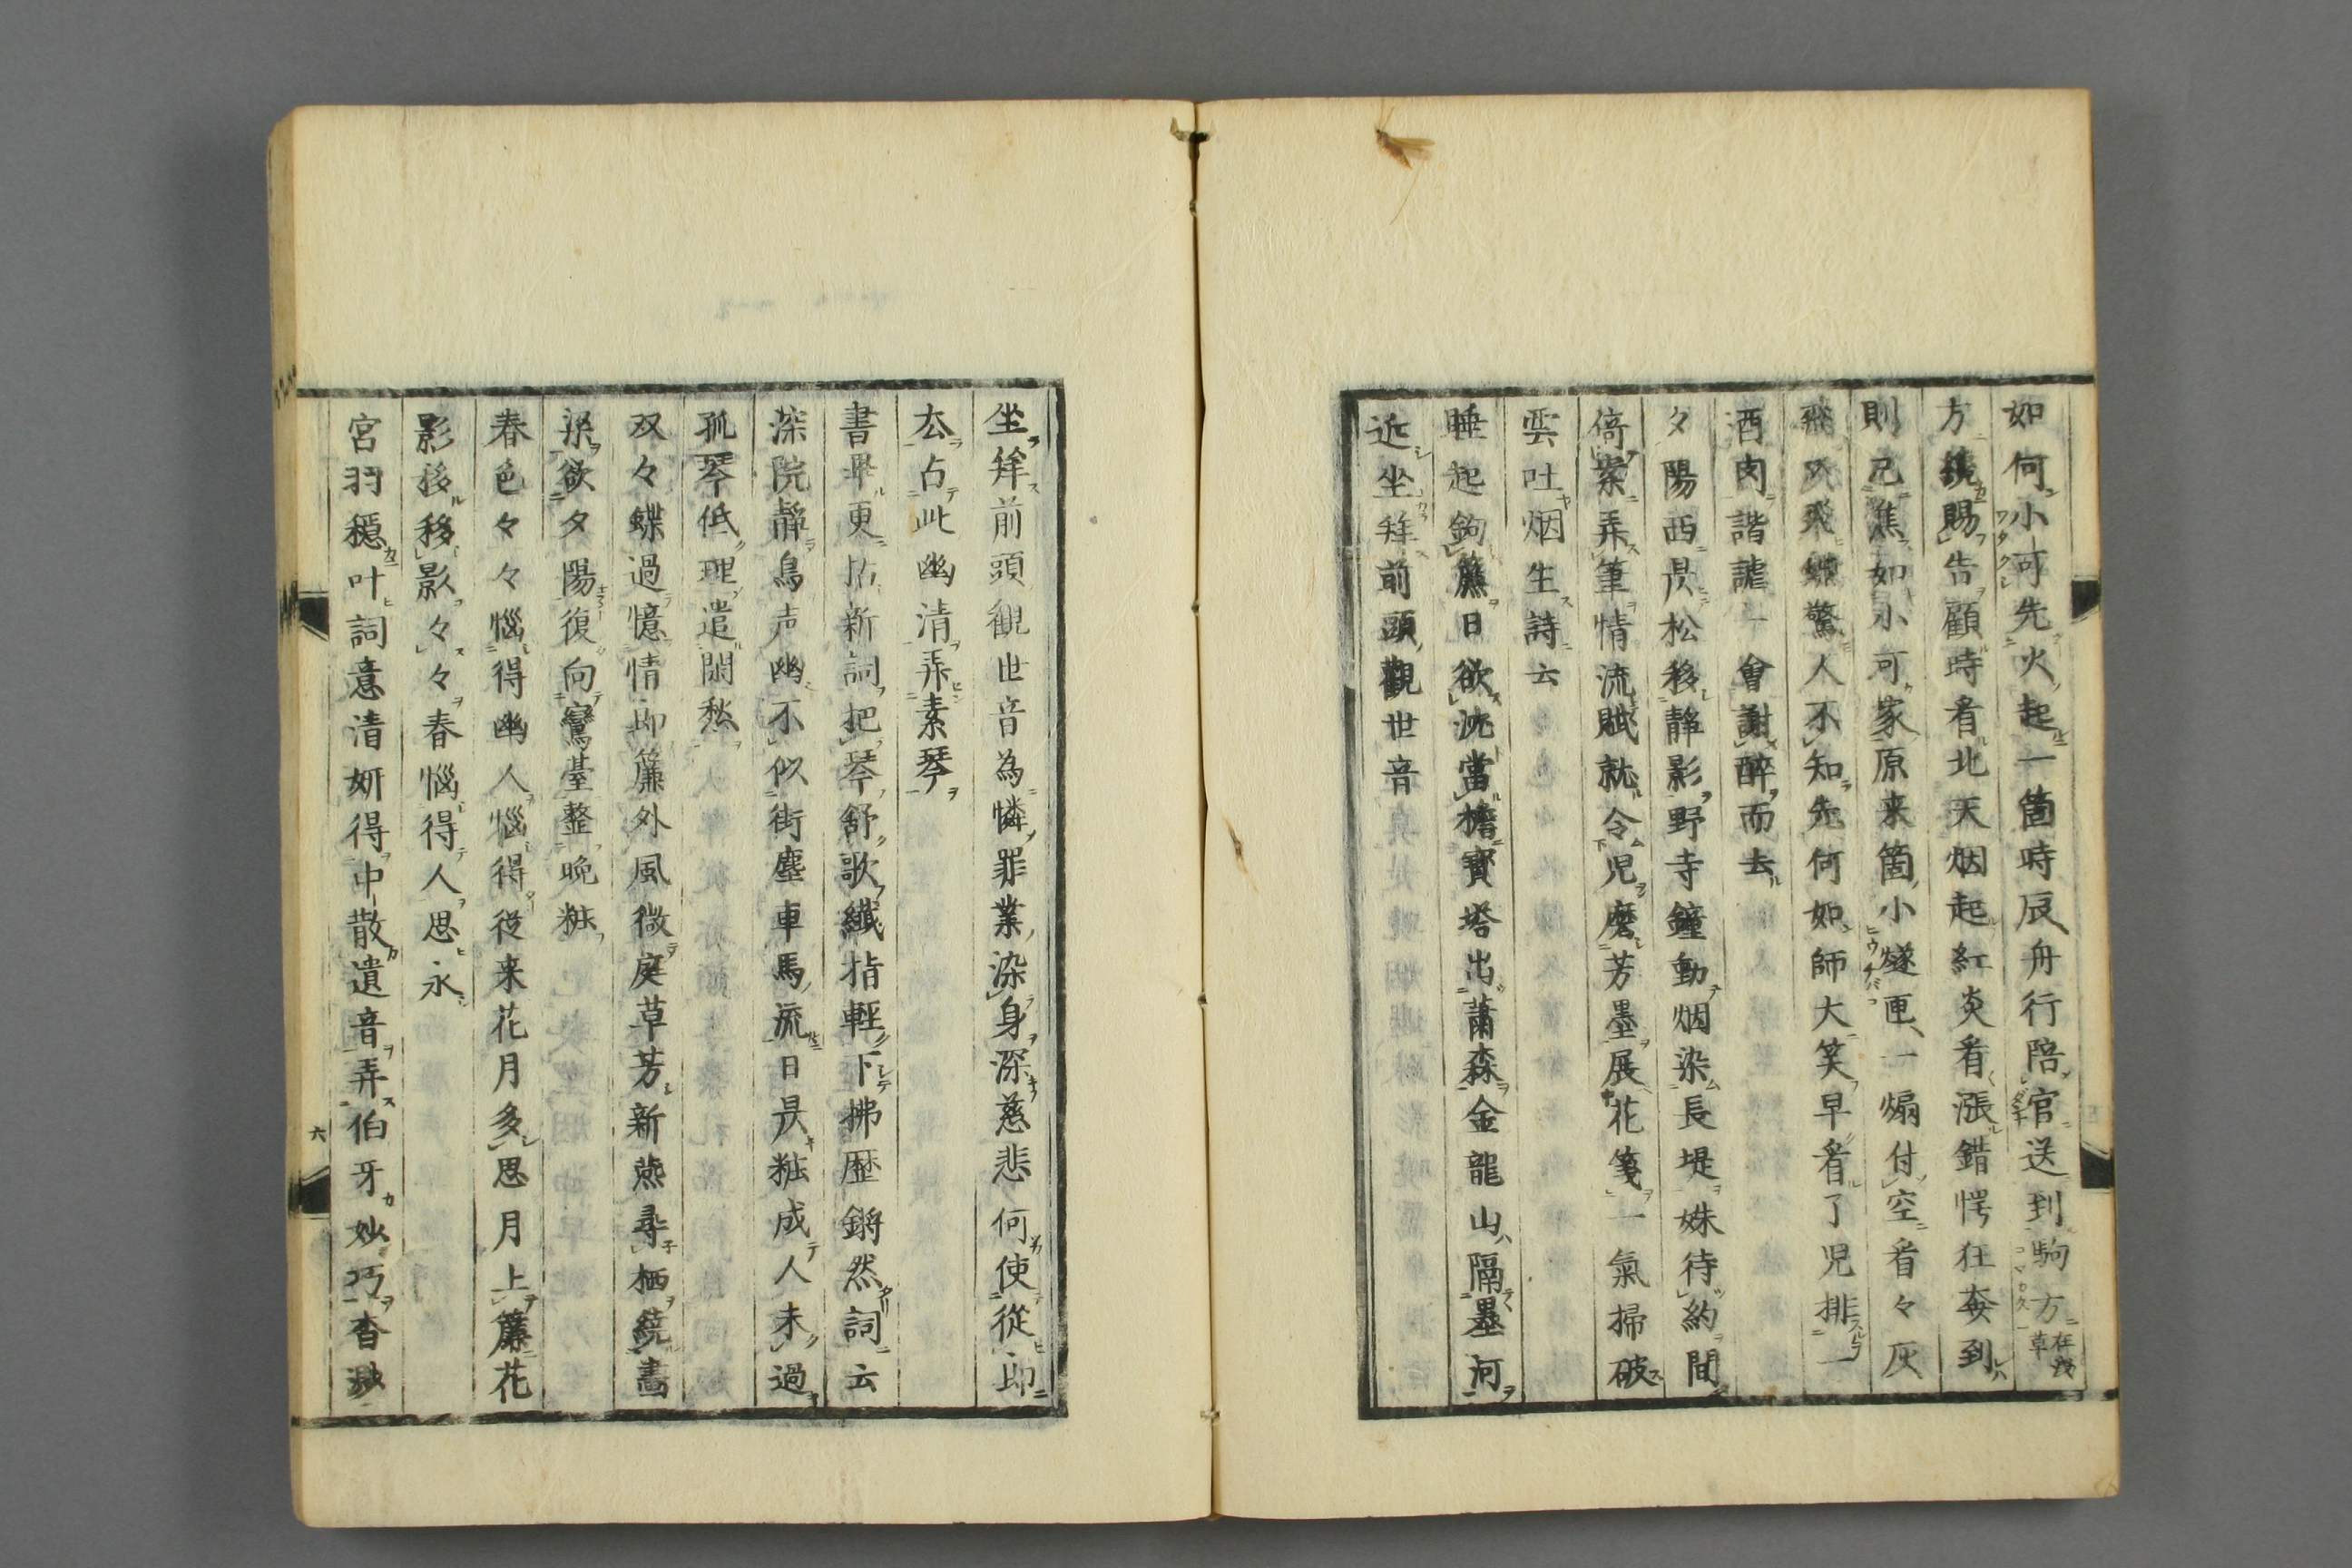 如何小可先火起一箇時辰舟行陪官送到駒方在浅草
方纔賜告顧時看北天烟起紅炎看漲錯愕狂奔到
則已焦如小可家原来箇小燧匣一煽付空看々灰
飛又飛蝶驚人不知先何如師大笑早看了児排一
酒肉諧謔一會謝醉而去
夕陽西昃松移静影野寺鐘動烟染長堤姝待約間
倚案弄筆情流賦就令児磨芳墨展花箋一氣掃破
雲吐烟生詩云
睡起鉤簾日欲沈當檐寳塔出蕭森金龍山隔墨河
近坐拜前頭觀世音
坐拜前頭觀世音為憐罪業染身深慈悲何使從郎
去占此幽清弄素琴
書畢更拈新詞把琴舒歌纎指軽下拂歴鏘然詞云
深院静鳥声幽不似街塵車馬流日昃粧成人未過
孤琴低理遣閑愁
双々蝶過憶情郎簾外風微庭草芳新燕尋栖繞畵
梁欲夕陽復向鸞臺整晩粧
春色々々惱得幽人惱得從来花月多思月上簾花
影移移影々々春惱得人思永
宮羽穏叶詞意清妍得中散遺音弄伯牙妙巧杳渺
六